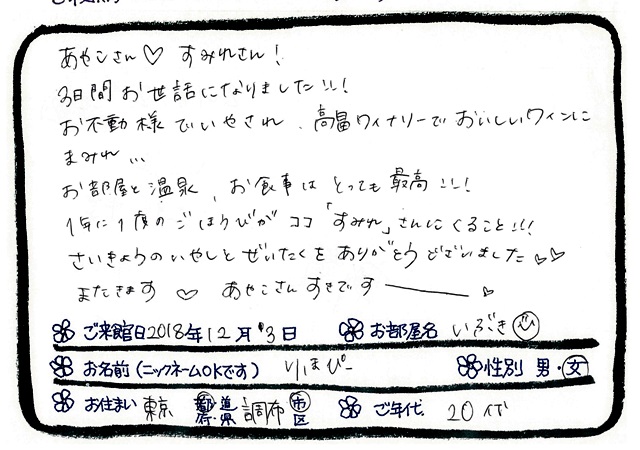 あやこさん♡ すみれさん!
3日間お世話になりました!!!
お不動様でいやされ、高畠ワイナリーでおいしいワインに
まみれ...
お部屋と温泉、お食事はとっても最高!!!
1年に1度のごほうびがココ「すみれ」さんにくること!!!
さいきょうのいやしとぜいたくをありがとうございました♡♡
またきます ♡ あやこさんすきです――♪
ご来館日2018年12月3日 お部屋名 いぶき
お名前(ニックネームOKです) りほぴー 性別 男・女
お住まい 東京 都・道・府・県 調布 市・区 ご年代 20代